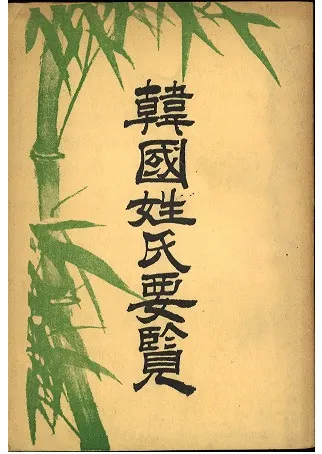 韓國姓氏要覽